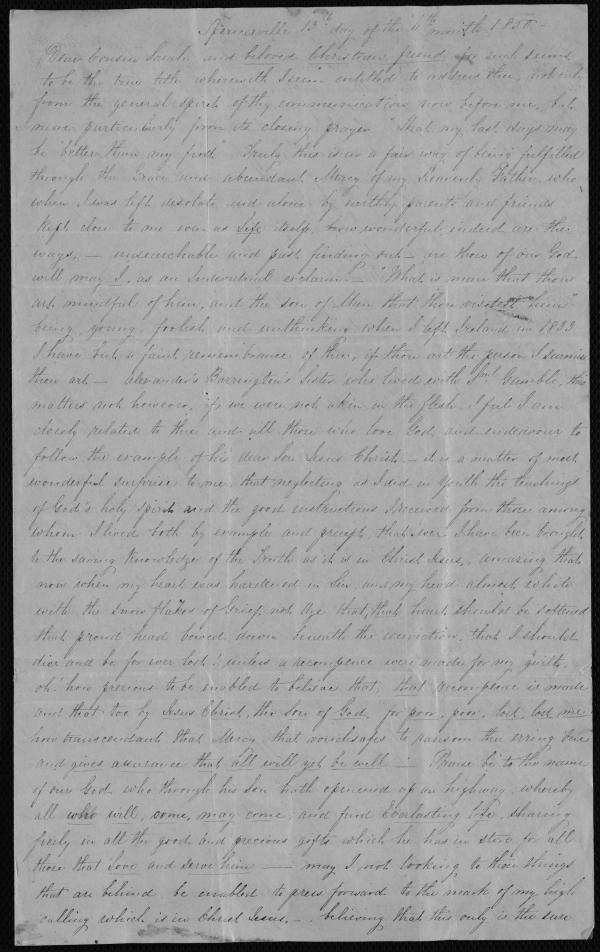 Spencerville 13th day of the 11th month 1850 -
Dear Cousin Sarah and beloved Christian friend for such seems
to be the true title wherewith I seem entitled to address thee, not only
from the general spirit of thy communication now before me, but
more particularly from its closing prayer "That my last days may
be better than my first." Truly this is in a fair way of being fulfilled
through the Grace and abundant Mercy of my Heavenly Father, who
when I was left desolate and alone by earthly parents and friends
kept close to me even as Life itself, how wonderful indeed are the
ways, - unsearchable and past finding out - are those of our God
well may I, as an Individual exclaim! - "What is man that thou
art mindful of him, and the son of Man that thou visitest him"
being young, foolish and unthinking when I left Ireland in 1823
I have but a faint remembrance of thee, if thou art the person I surmise
thou art - Alexander Barrington's Sister who lived with Gamble, this
matters not however, if we were not akin in the flesh, I feel I am
closely related to thee and all those who love God, and endeavour to
follow the example of his dear Son Jesus Christ - it is a matter of most
wonderful surprise to me, that neglecting as I did in Youth the teachings
of God's holy spirit and the good instructions I received from those among
whom I lived both by example and precept, that ever I have been brought
to the saving Knowledge of the Truth as it is in Christ Jesus, amazing that
now when my heart was hardened in Sin, and my head almost white
with the snow flakes of Grief, not Age that, that heart should be softened
that proud head bowed down beneath the conviction, that I should
die and be for ever lost! unless a recompence were made for my guilt,
oh! how precious to be enabled to believe that, that recompence is made
and that too by Jesus Christ, the Son of God, for poor, poor, lost, lost me
how transcendant that Mercy, that vouchsafes to ransom the erring One
and gives assurance that all will yet be well - Praise be to the name
of our God, who through his Son hath opened up an highway, whereby
all who will, come, may come, and find Everlasting life, sharing
freely in all the good and precious gifts which he has in store for all
those that Love and serve him - may I not looking to those things
that are behind be enabled to press forward to the mark of my high
calling which is in Christ Jesus, - believing that this only is the sure